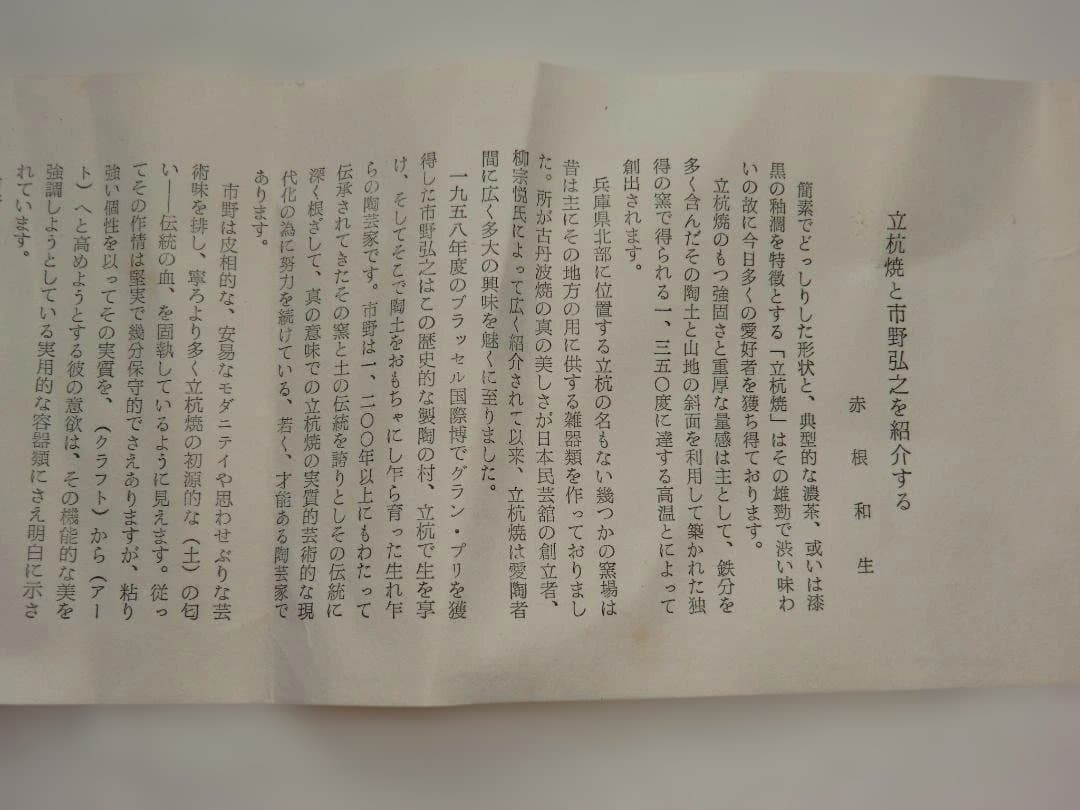 立杭焼と市野弘之を紹介する
赤根和生
簡素でどっしりした形状と、典型的な濃茶、或いは漆
黒の釉潤を特徴とする「立杭焼」はその雄勁で渋い味わ
いの故に今日多くの愛好者を獲ち得ております。
立杭焼のもつ強固さと重厚な量感は主として、鉄分を
多く含んだその陶土と山地の斜面を利用して築かれた独
得の窯で得られる一、三五〇度に達する高温とによって
創出されます。
兵庫県北部に位置する立杭の名もない幾つかの窯場は
昔は主にその地方の用に供する雑器類を作っておりまし
た。所が古丹波焼の真の美しさが日本民芸舘の創立者、
柳宗悦氏によって広く紹介されて以来、立杭焼は愛陶者
間に広く多大の興味を魅くに至りました。
一九五八年度のブラッセル国際博でグラン・プリを獲
得した市野弘之はこの歴史的な製陶の村、立杭で生を享
け、そしてそこで陶土をおもちゃにし乍ら育った生れ乍
らの陶芸家です。市野は一、二〇〇年以上にもわたって
伝承されてきたその窯と土の伝統を誇りとしその伝統に
深く根ざして、真の意味での立杭焼の実質的芸術的な現
代化の為に努力を続けている、若く、才能ある陶芸家で
あります。
市野は皮相的な、安易なモダニテイや思わせぶりな芸
術味を排し、寧ろより多く立杭焼の初源的な（土）の匂
い――伝統の血、を固執しているように見えます。従っ
てその作情は堅実で幾分保守的でさえありますが、粘り
強い個性を以ってその実質を、（クラフト）から（アー
ト）へと高めようとする彼の意欲は、その機能的な美を
強調しようとしている実用的な容器類にさえ明白に示さ
れています。